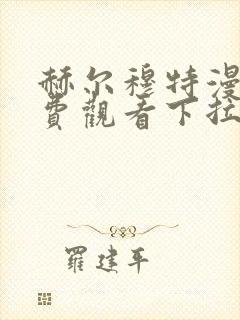 赫尔穆特漫
费觀看下拉
羅建平